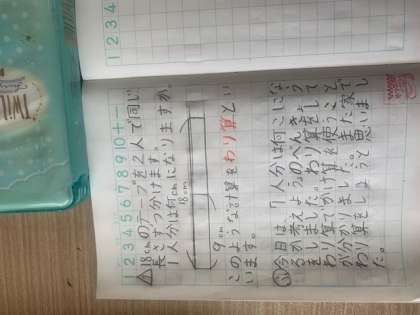 TWIL
1 2 3 4
1 2 3 4 5 6 7 8 9 10 + −
18cmのテープを2人で同じ
長さずつ分けます。
1人分は何cmになりますか。
18cm
9cm
このような計算をわり算とい
います。
今日は、1人分は何こにな
るか考えようのべんきょう
をしました。わり算をして
わり算でかけ算を使うこと
が分かりました。また家で
わり算をしようと思いまし
た。